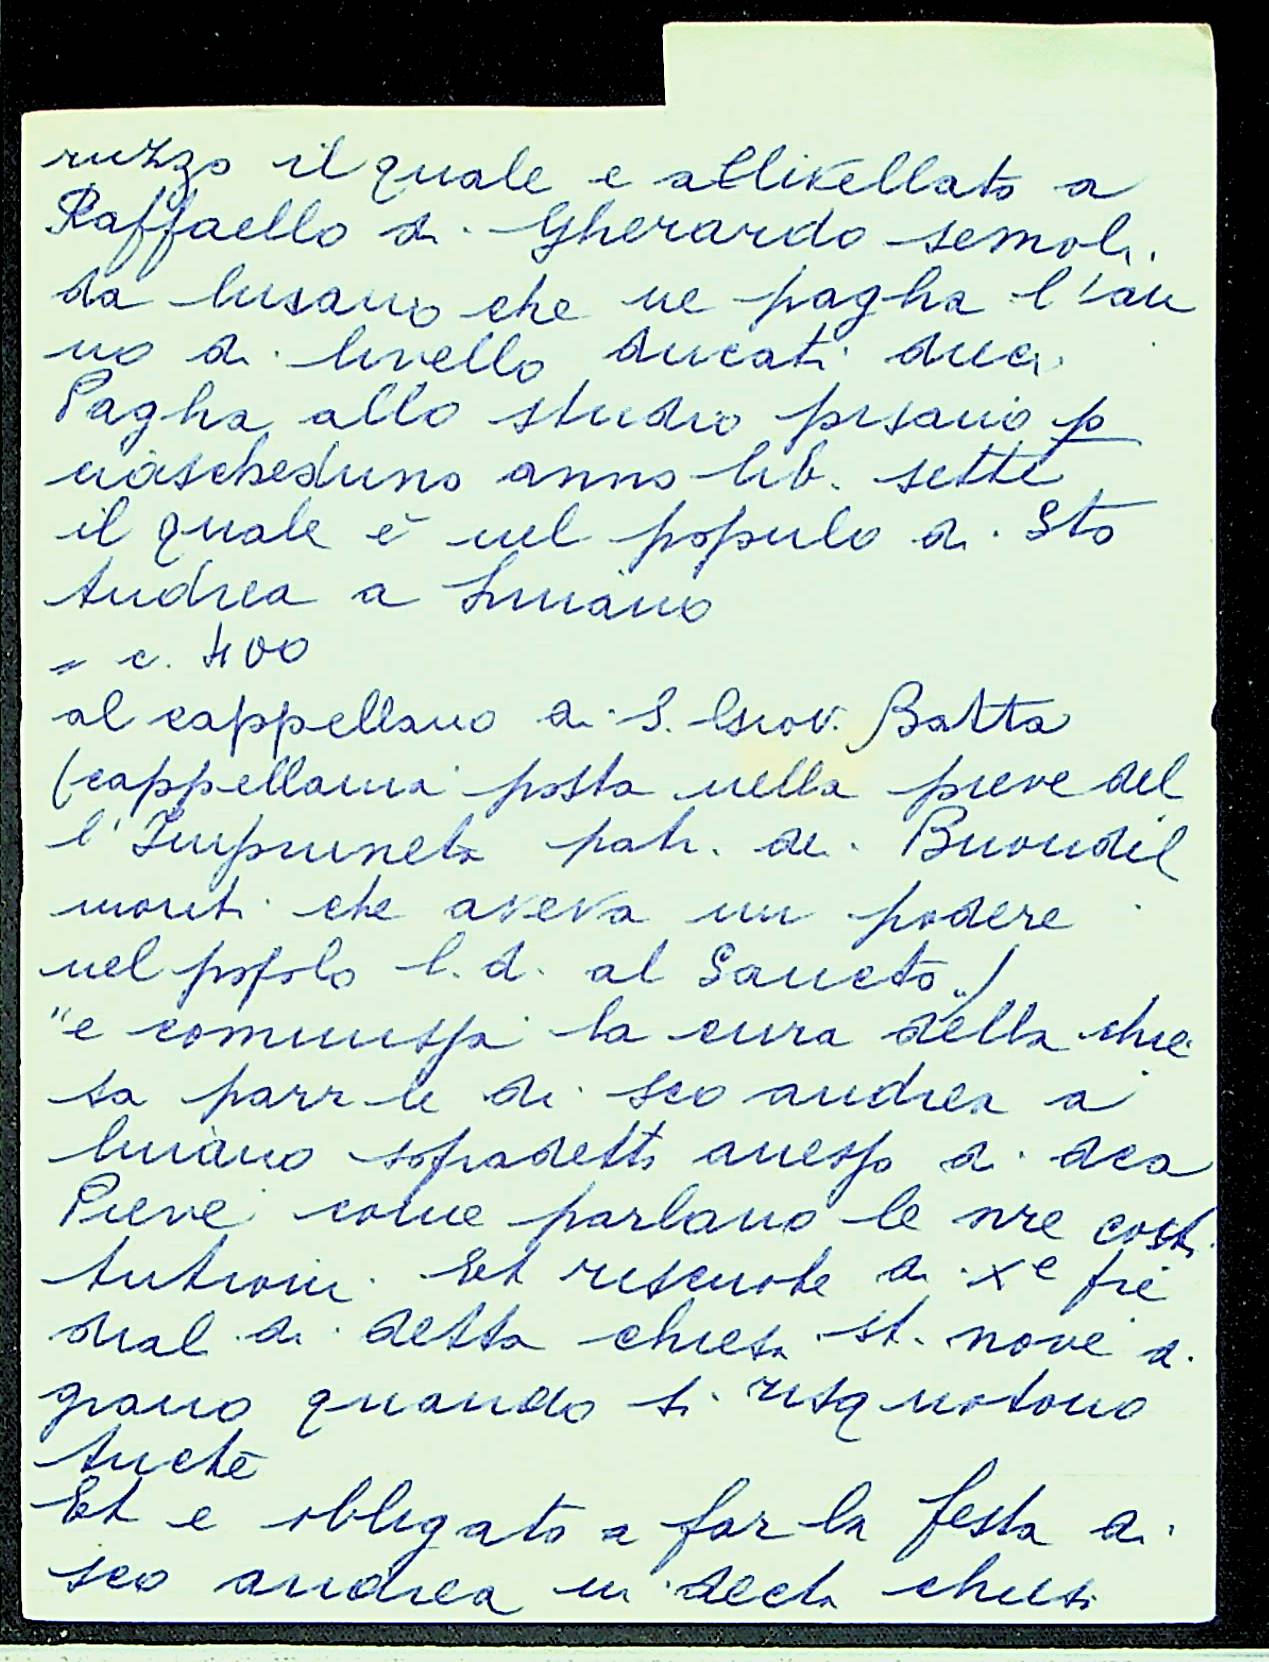 ruzzo il quale e allivellato a
Raffaello di Gherardo semoli
da lusano che ne pagha l'an
no di livello ducati dieci
Pagha allo studio pisano p
ciascheduno anno lib. sette
il quale è nel populo di Sto
Andrea a Luiano
= c. 400
al cappellano di S. Giov. Batta
(cappellania posta nella pieve del
l'Impruneta patr. dei Buondel
monti che aveva un podere
nel popolo l. d. al Sancto.)
"e commissa la cura della chie
sa parr-le di sco andrea a
luiano sopradetto anesso di dca
Pieve come parlano le nre costi
tutioni. Et riscuote di Xe pre
diali di detta chiesa st. nove di
grano quando si risquotono
tucte
Et e obligato a far la festa di
sco andrea in decta chiesa